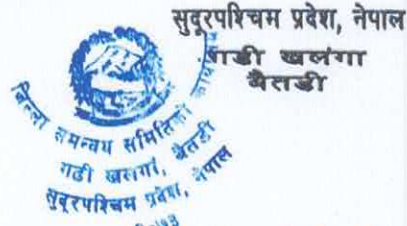 सुदूरपश्चिम प्रदेश, नेपाल
गढी खलंगा
बैतडी
जिल्ला समन्वय समितिको कार्यालय
गढी खलंगा, बैतडी
सुदूरपश्चिम प्रदेश, नेपाल